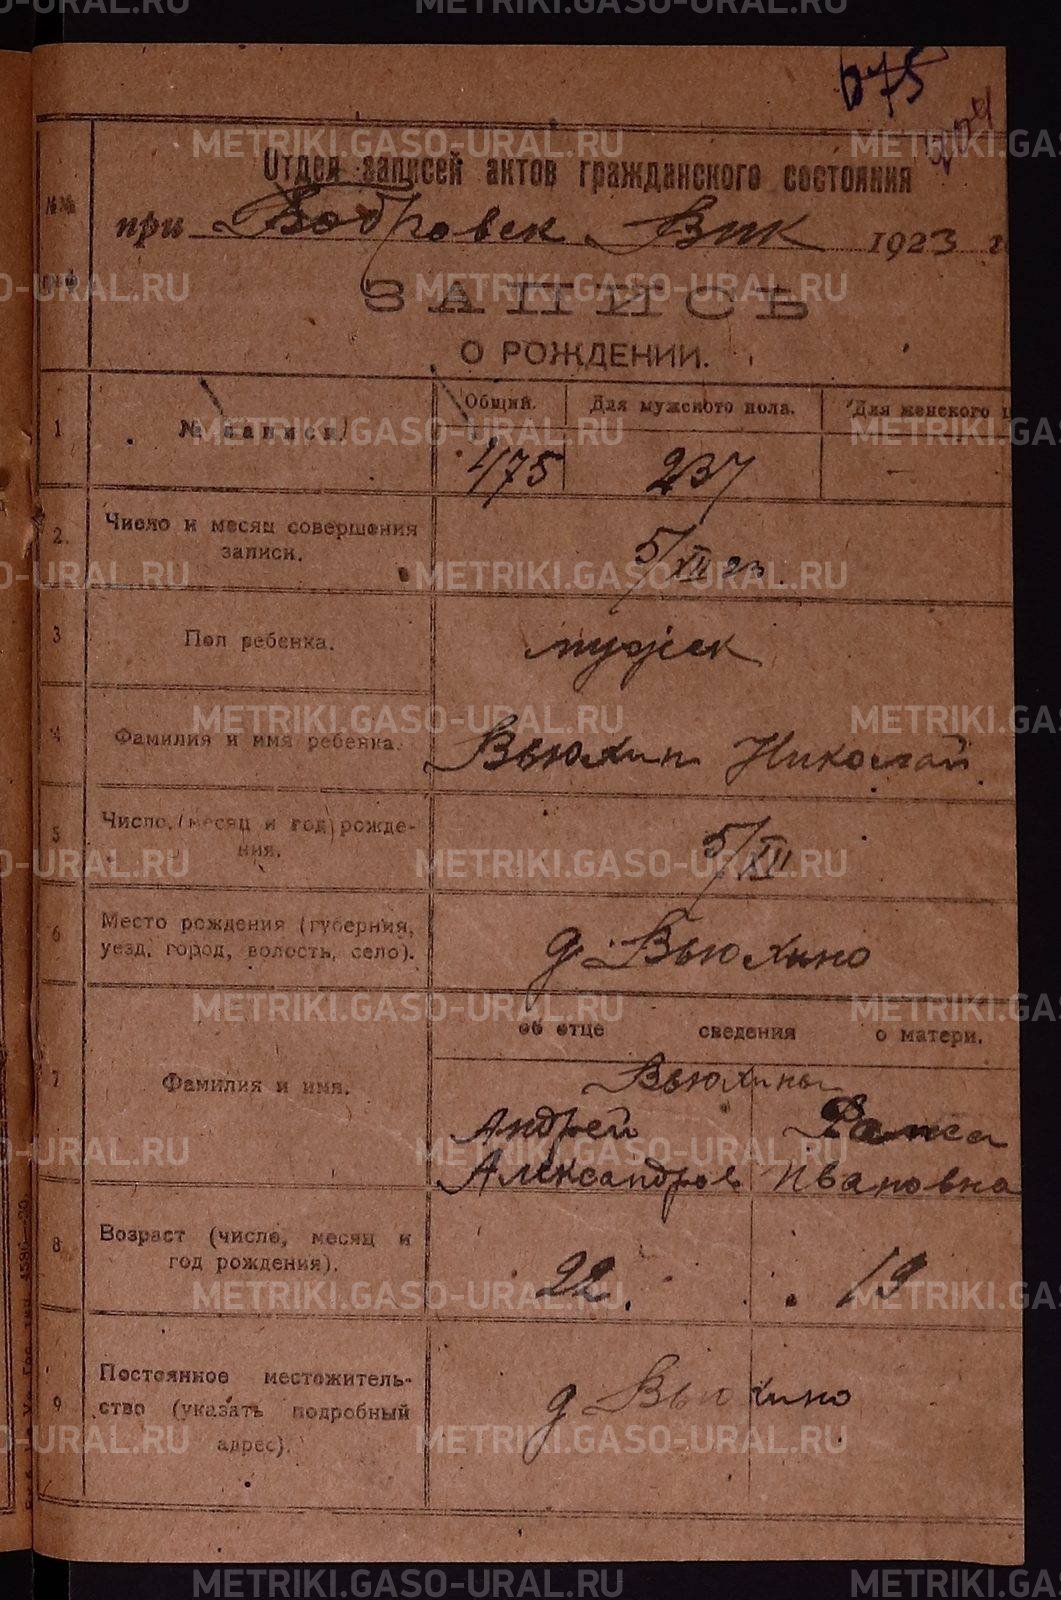 675
204
Отдел записей актов гражданского состояния
при Бобровск Вик 1923 г
ЗАПИСЬ
О РОЖДЕНИИ.
1 № записи. Общий. Для мужского пола. Для женского п
475 237 —
2. Число и месяц совершения записи. 5/XII 23.
3 Пол ребенка. мужск
4 Фамилия и имя ребенка. Вьюхин Николай
5 Число, (месяц и год) рожде-
ния. 5/XII
6 Место рождения (губерния,
уезд, город, волость, село). д Вьюхино
об отце сведения о матери.
7 Фамилия и имя. Вьюхины
Андрей
Александров Ивановна
8 Возраст (число, месяц и
год рождения). 22. 19
9 Постоянное местожитель-
ство (указать подробный
адрес). д Вьюхино
METRIKI.GASO-URAL.RU